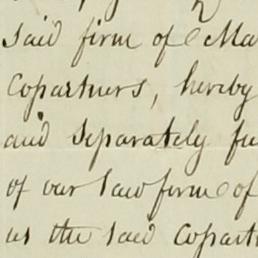 said firm of Ma
Copartners, hereby
and separately fu
of our law firm of
us the said Copart